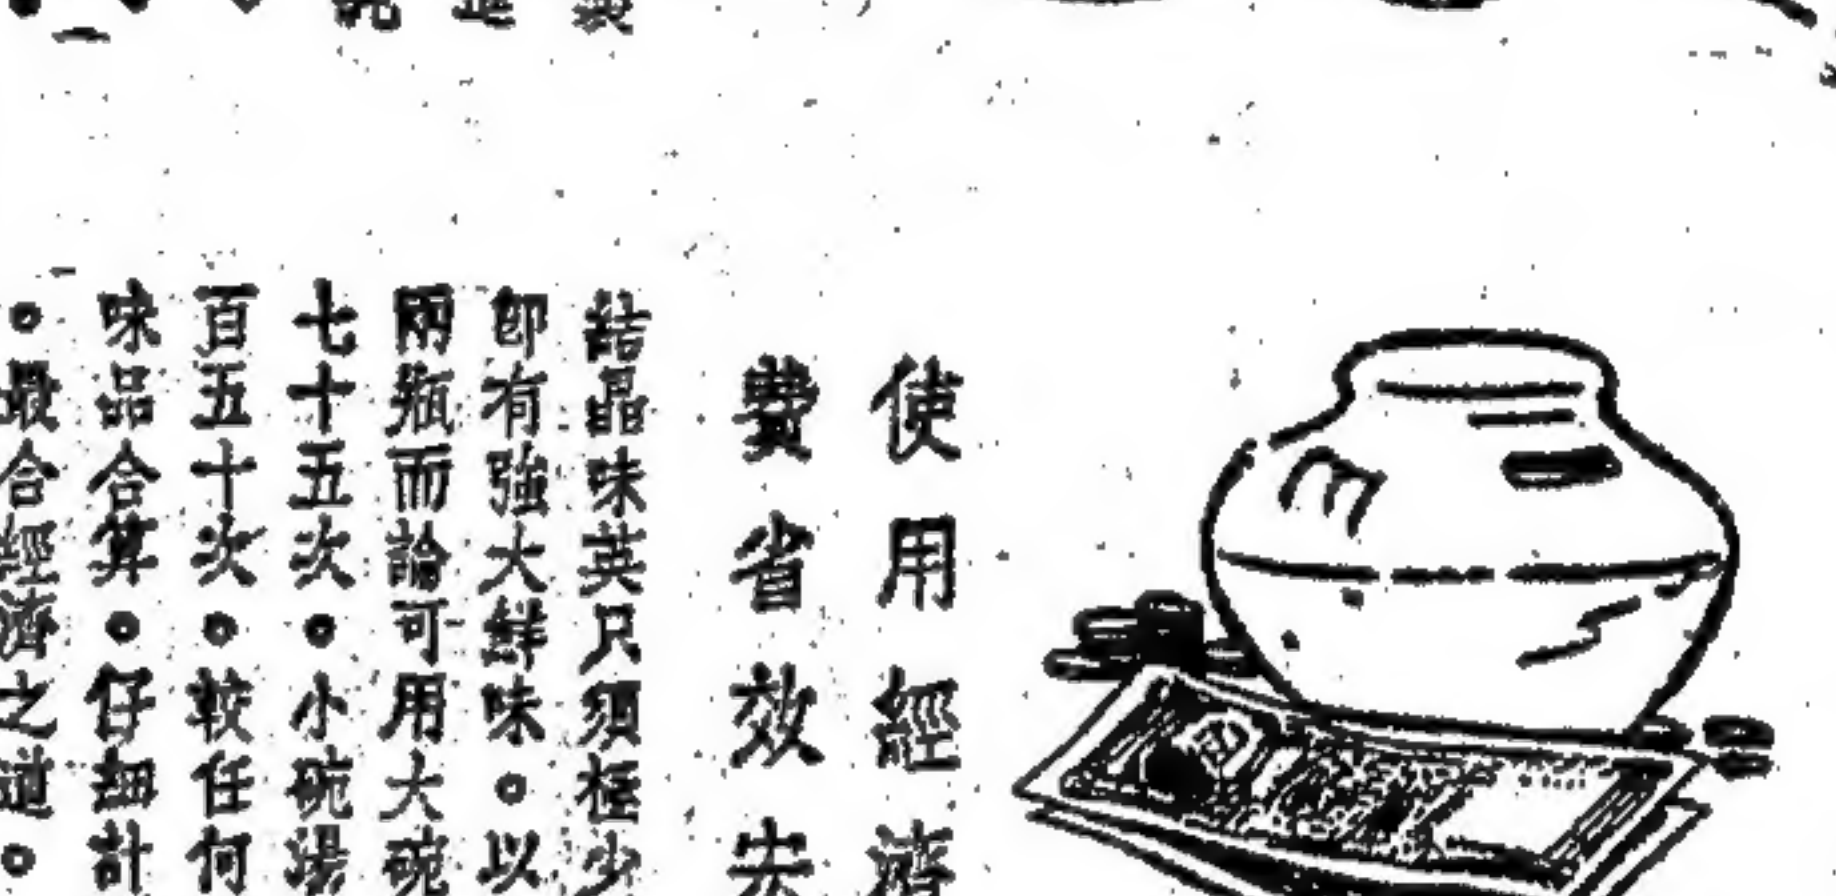 使用經濟
費省效宏
結晶味英只須極少
卽有強大鮮味。以
兩瓶而論可用大碗
七十五次。小碗湯
百五十次。較任何
味品合算。仔細計
。最合經濟之道。